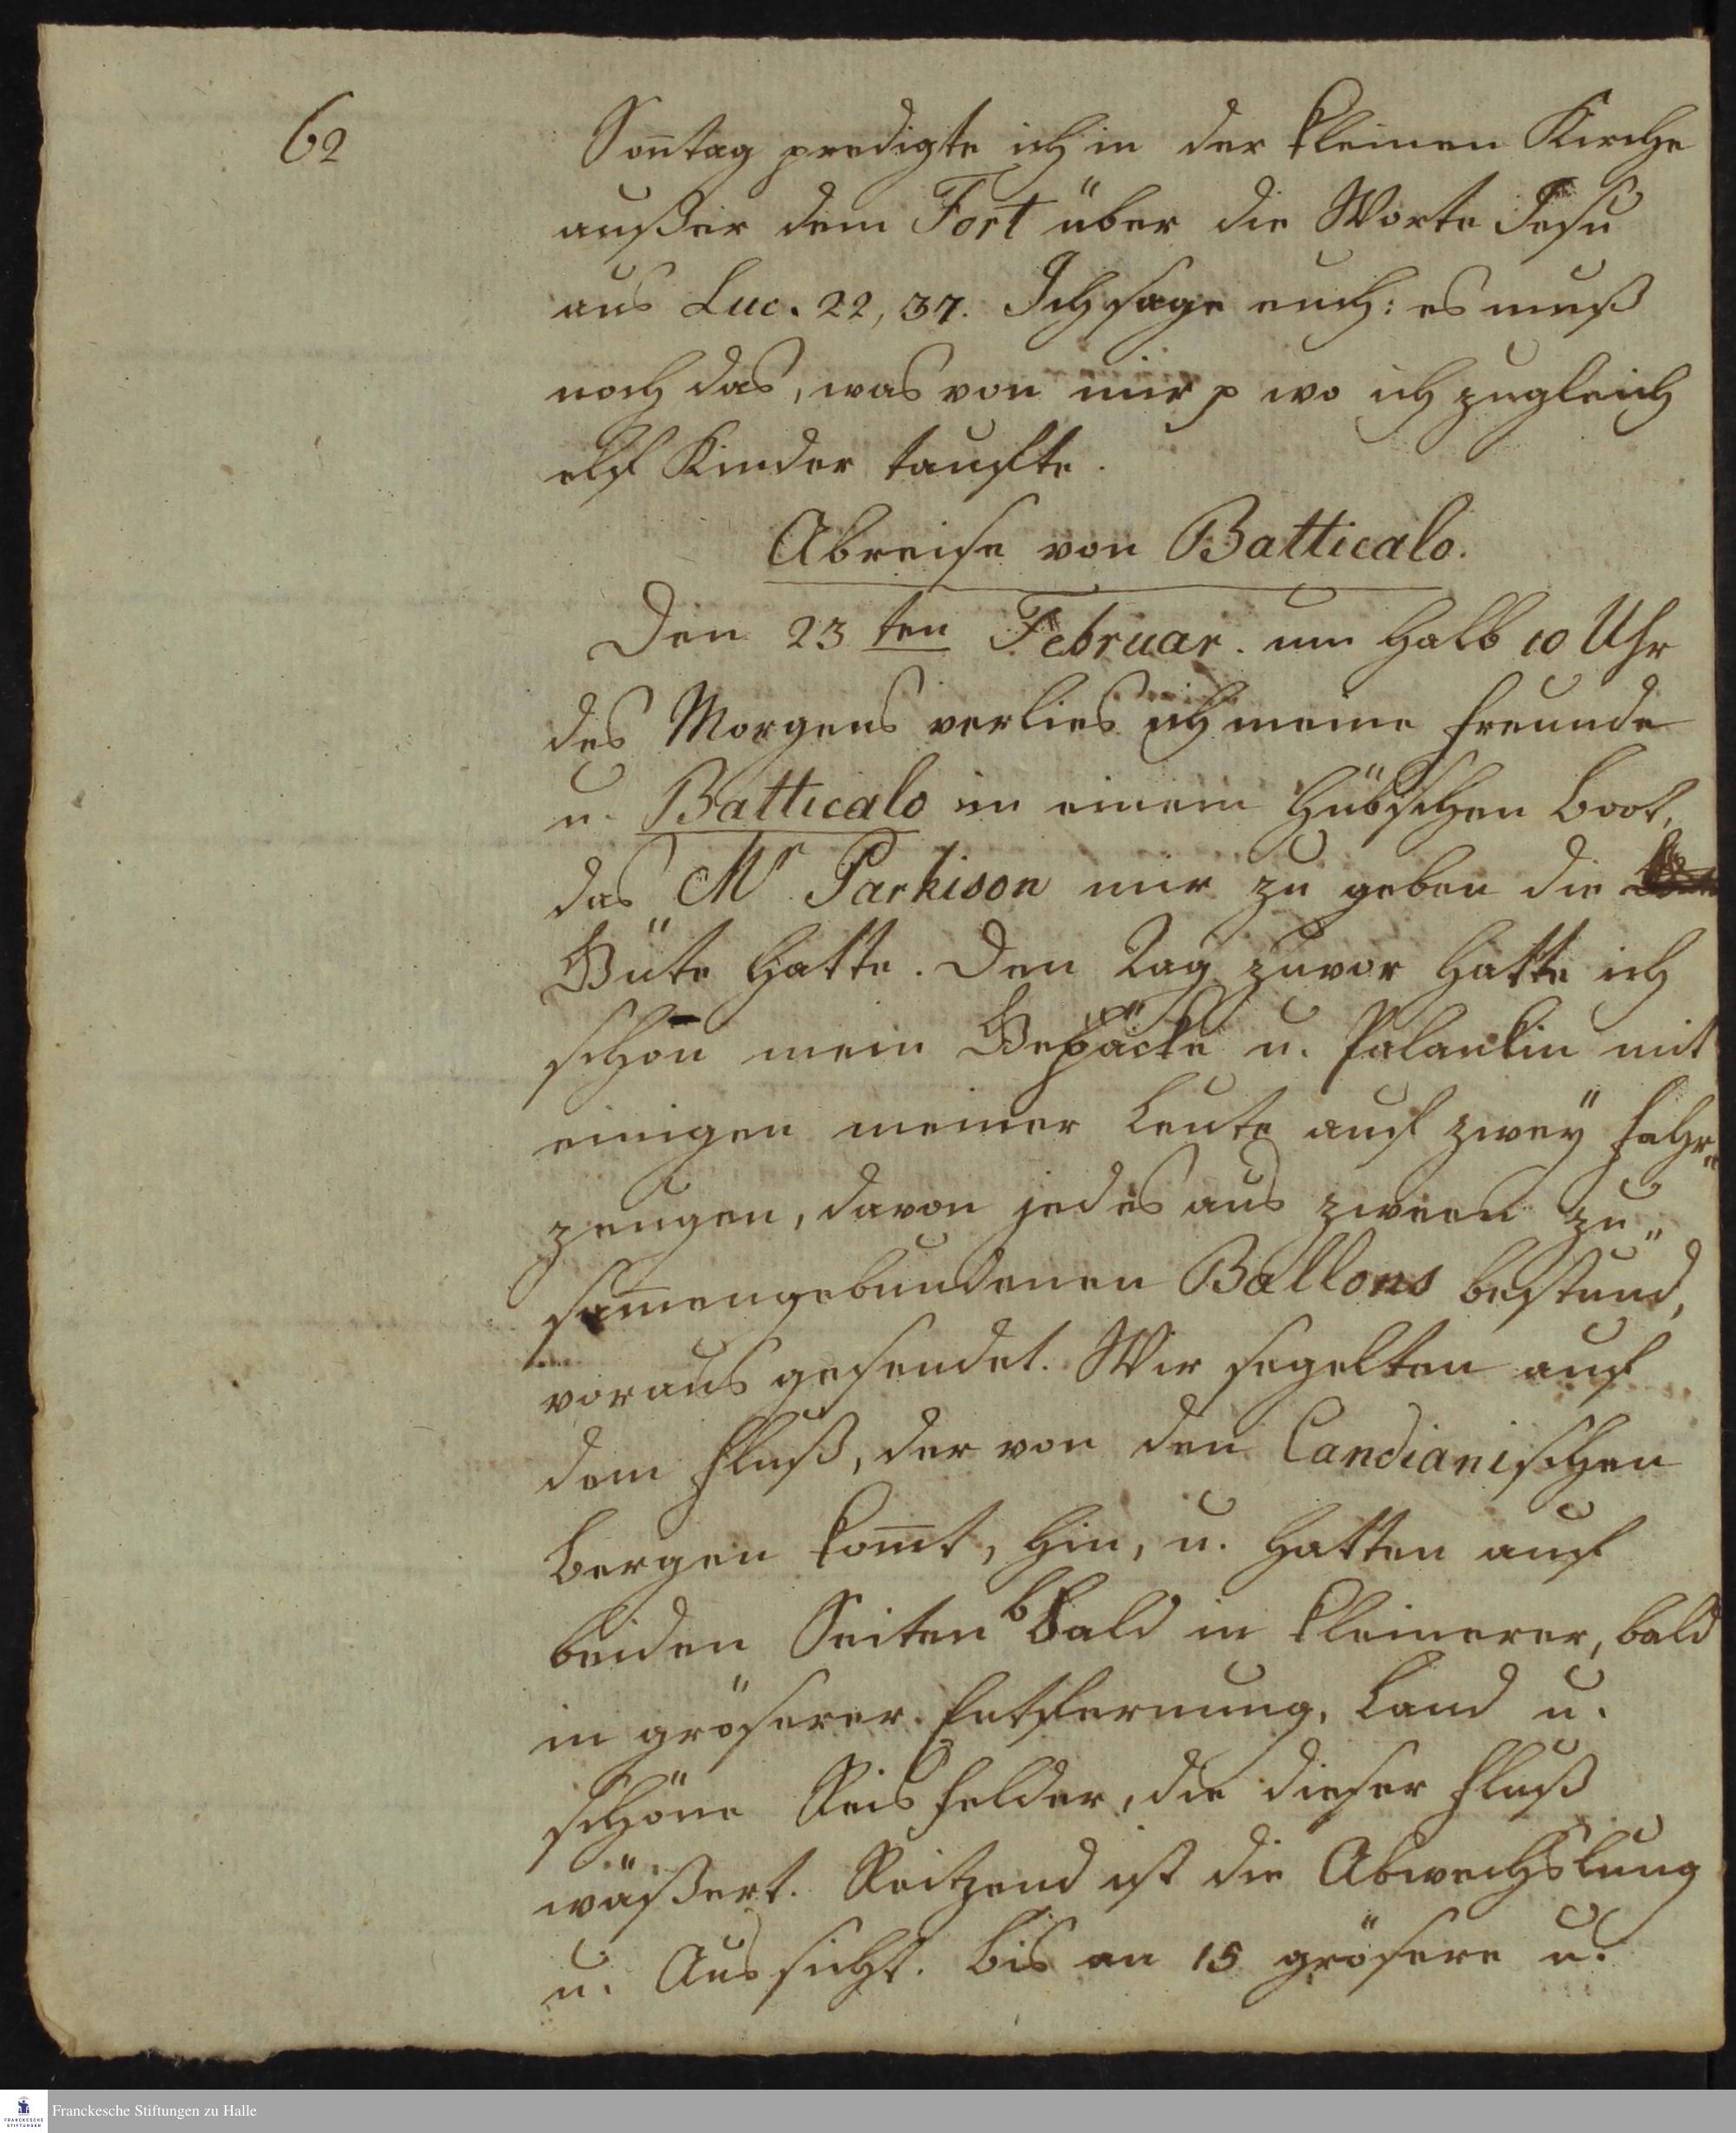 62
Son̄tag predigte ich in der kleinen Kirche
außer dem Fort über die Worte Jesu
aus Luc. 22, 37. Ich sage euch: es muß
noch das, was von mir p wo ich zugleich
elf Kinder taufte.
Abreise von Batticalo.
Den 23ten Februar. um halb 10 Uhr
des Morgens verlies ich meine Freunde
u. Batticalo in einem hübschen Boot,
das Mr Parkison mir zu geben die
Güte hatte. Den Tag zuvor hatte ich
schon mein Gepäcke u. Palankin mit
einigen meiner Leute auf zwey Fahr„
zeugen, davon jedes aus zween zu„
sam̄engebundenen Ballons bestund,
voraus gesendet. Wir segelten auf
dem Fluß, der von den Candianischen
Bergen kom̄t, hin, u. hatten auf
beiden Seiten bald in kleinerer, bald
in gröserer Entfernung, Land u.
schöne Reisfelder, die dieser Fluß
wäßert. Reitzend ist die Abwechslung
u. Aussicht. Bis an 15 grösere u.
Franckesche Stiftungen zu Halle
FRANCKESCHE
STIFTUNGEN